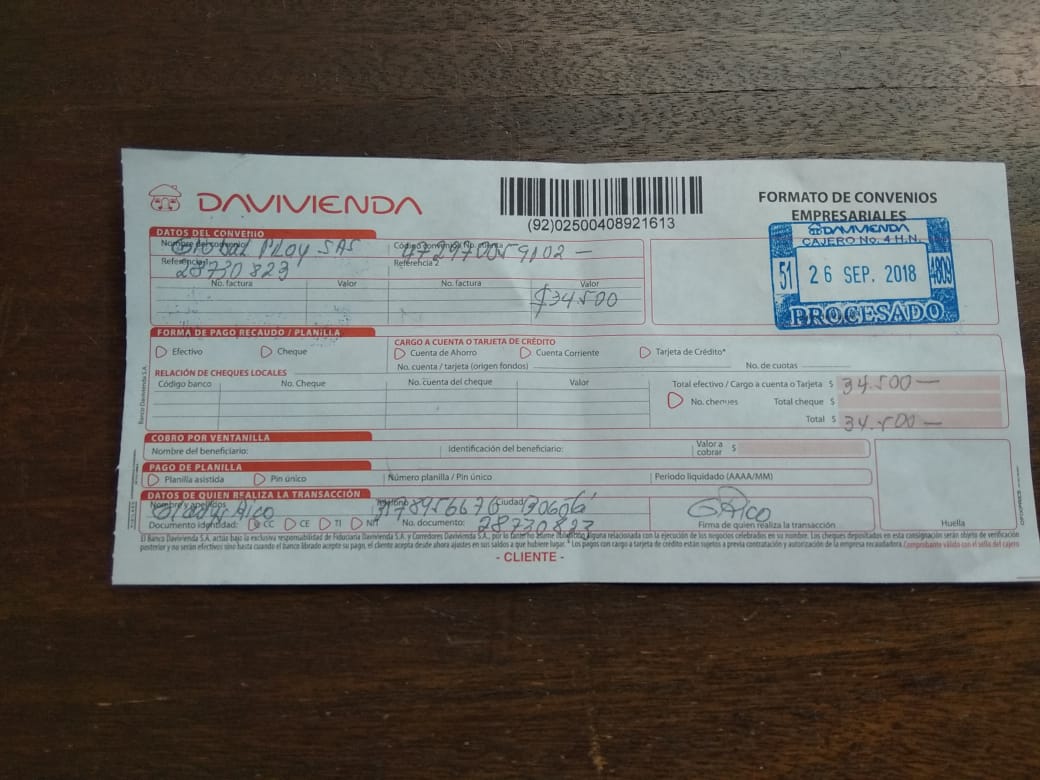 DAVIVIENDA
(92)02500408921613
FORMATO DE CONVENIOS
EMPRESARIALES
DAVIVIENDA
CAJERO No. 4 H.N.
51 26 SEP. 2018 4809
PROCESADO
DATOS DEL CONVENIO
Nombre del convenio
SAS
Código convenio / No. cuenta
Referencia 1
28730 823
Referencia 2
No. factura Valor No. factura Valor
$34.500
FORMA DE PAGO RECAUDO / PLANILLA
Efectivo Cheque
CARGO A CUENTA O TARJETA DE CRÉDITO
Cuenta de Ahorro Cuenta Corriente Tarjeta de Crédito*
No. cuenta / tarjeta (origen fondos) No. de cuotas
RELACIÓN DE CHEQUES LOCALES
Código banco No. Cheque No. cuenta del cheque Valor
Total efectivo / Cargo a cuenta o Tarjeta $ 34.500—
No. cheques Total cheque $
Total $ 34.500—
COBRO POR VENTANILLA
Nombre del beneficiario: Identificación del beneficiario: Valor a cobrar $
PAGO DE PLANILLA
Planilla asistida Pin único Número planilla / Pin único Periodo liquidado (AAAA/MM)
DATOS DE QUIEN REALIZA LA TRANSACCIÓN
Nombre y apellidos Rico
Ciudad Bogotá
GRico
Documento identidad: CC CE TI NIT No. documento: 28730823 Firma de quien realiza la transacción Huella
El Banco Davivienda S.A. actúa bajo la exclusiva responsabilidad de Fiduciaria Davivienda S.A. y Corredores Davivienda S.A., por lo tanto no asume obligación alguna relacionada con la ejecución de los negocios celebrados en su nombre. Los cheques depositados en esta consignación serán objeto de verificación
posterior y no serán efectivos sino hasta cuando el banco librado acepte su pago, el cliente acepta desde ahora ajustes en sus saldos a que hubiere lugar. * Los pagos con cargo a tarjeta de crédito están sujetos a previa contratación y autorización de la empresa recaudadora. Comprobante válido con el sello del cajero
- CLIENTE -
Banco Davivienda S.A.